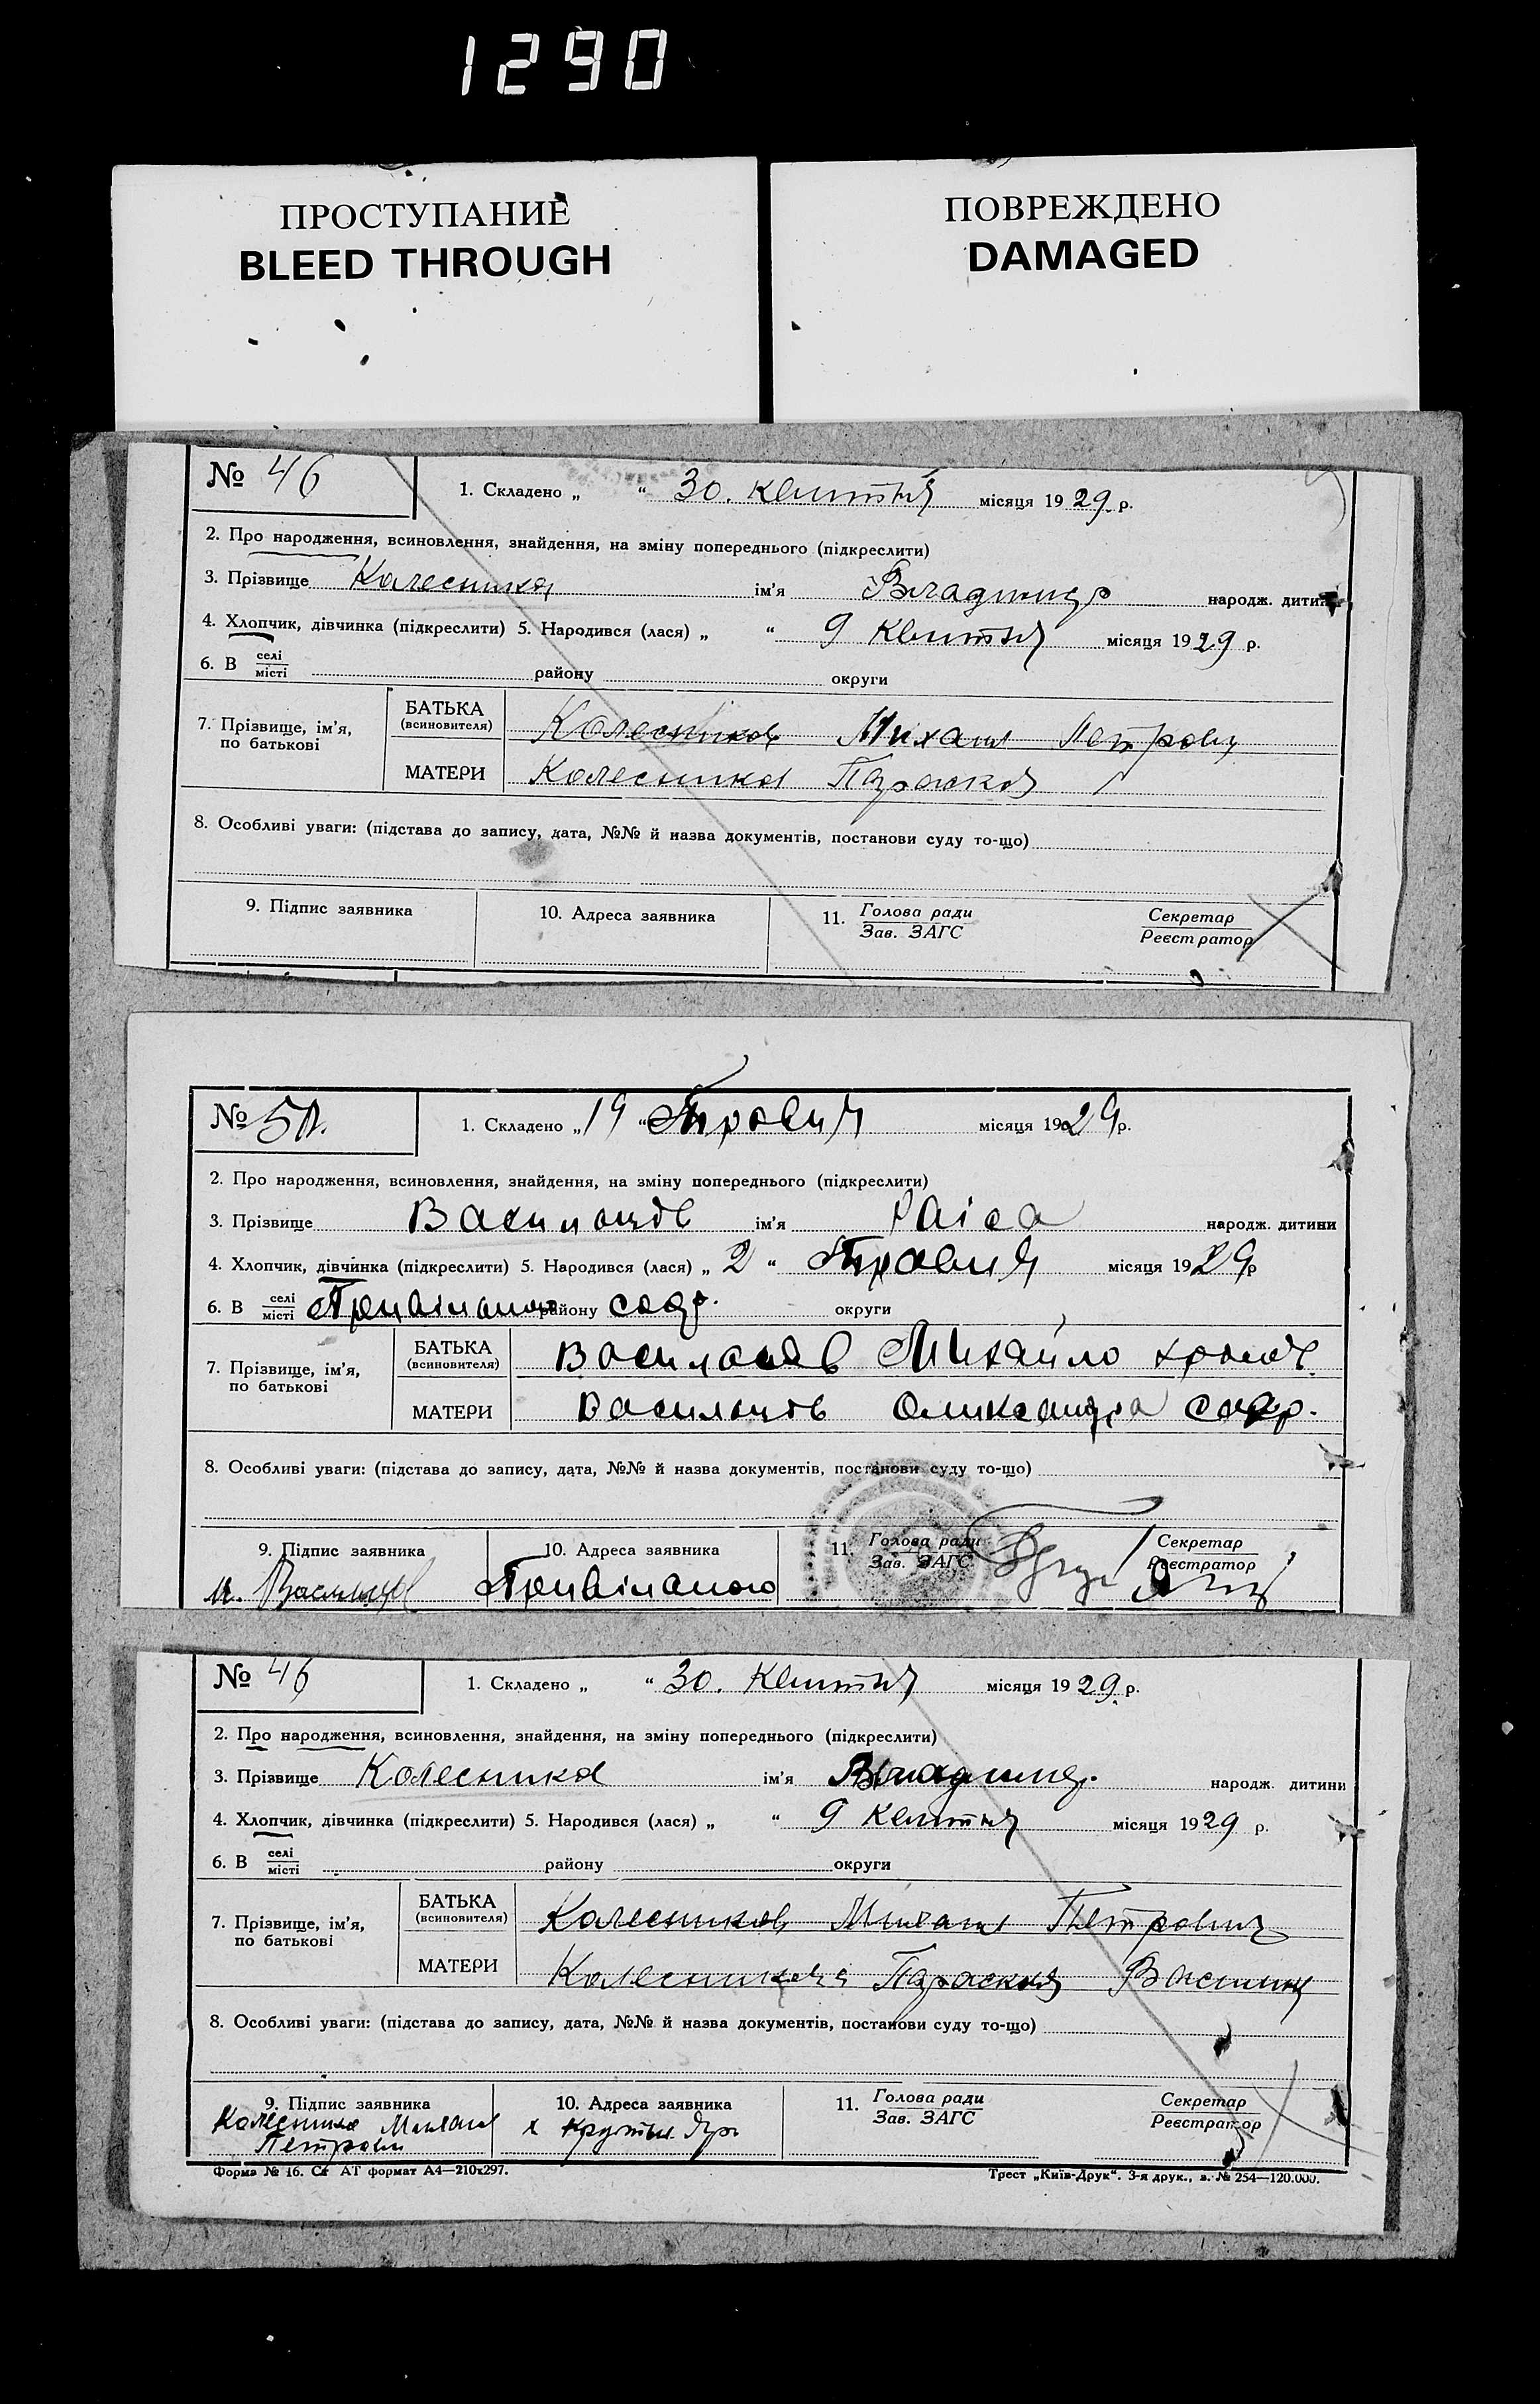 1290
ПРОСТУПАНИЕ
BLEED THROUGH
ПОВРЕЖДЕНО
DAMAGED
№ 46
1. Складено „ “ 30. Квитня місяця 1929 р.
2. Про народження, всиновлення, знайдення, на зміну попереднього (підкреслити)
3. Прізвище Колесника ім'я Владимир народж. дитини
4. Хлопчик, дівчинка (підкреслити) 5. Народився (лася) „ “ 9 Квитня місяця 1929 р.
6. В селі/місті району округи
7. Прізвище, ім'я, по батькові
БАТЬКА (всиновителя) Колесников Михаил Петрович
МАТЕРИ Колесника Параска
8. Особливі уваги: (підстава до запису, дата, №№ й назва документів, постанови суду то-що)
9. Підпис заявника
10. Адреса заявника
11. Голова ради/Зав. ЗАГС
Секретар/Реєстратор
№
1. Складено „19“ Травня місяця 1929 р.
2. Про народження, всиновлення, знайдення, на зміну попереднього (підкреслити)
3. Прізвище Васильцов ім'я Раіса народж. дитини
4. Хлопчик, дівчинка (підкреслити) 5. Народився (лася) „2“ Травня місяця 1929 р
6. В селі/місті району округи
7. Прізвище, ім'я, по батькові
БАТЬКА (всиновителя) Васильцов Михайло
МАТЕРИ Васильцов Олександра
8. Особливі уваги: (підстава до запису, дата, №№ й назва документів, постанови суду то-що)
9. Підпис заявника
М. Васильцов
10. Адреса заявника
11. Голова ради/Зав. ЗАГС
Секретар/Реєстратор
№ 46
1. Складено „ “ 30. Квитня місяця 1929 р.
2. Про народження, всиновлення, знайдення, на зміну попереднього (підкреслити)
3. Прізвище Колесника ім'я Владимир. народж. дитини
4. Хлопчик, дівчинка (підкреслити) 5. Народився (лася) „ “ 9 Квитня місяця 1929 р.
6. В селі/місті району округи
7. Прізвище, ім'я, по батькові
БАТЬКА (всиновителя) Колесников Михаил Петрович
МАТЕРИ Параска
8. Особливі уваги: (підстава до запису, дата, №№ й назва документів, постанови суду то-що)
9. Підпис заявника
Колесника Михаил
Петрович
10. Адреса заявника
х Крутий Яр
11. Голова ради/Зав. ЗАГС
Секретар/Реєстратор
Форма № 16. Ст АТ формат А4—210х297.
Трест „Київ-Друк“. 3-я друк., з. № 254—120.000.